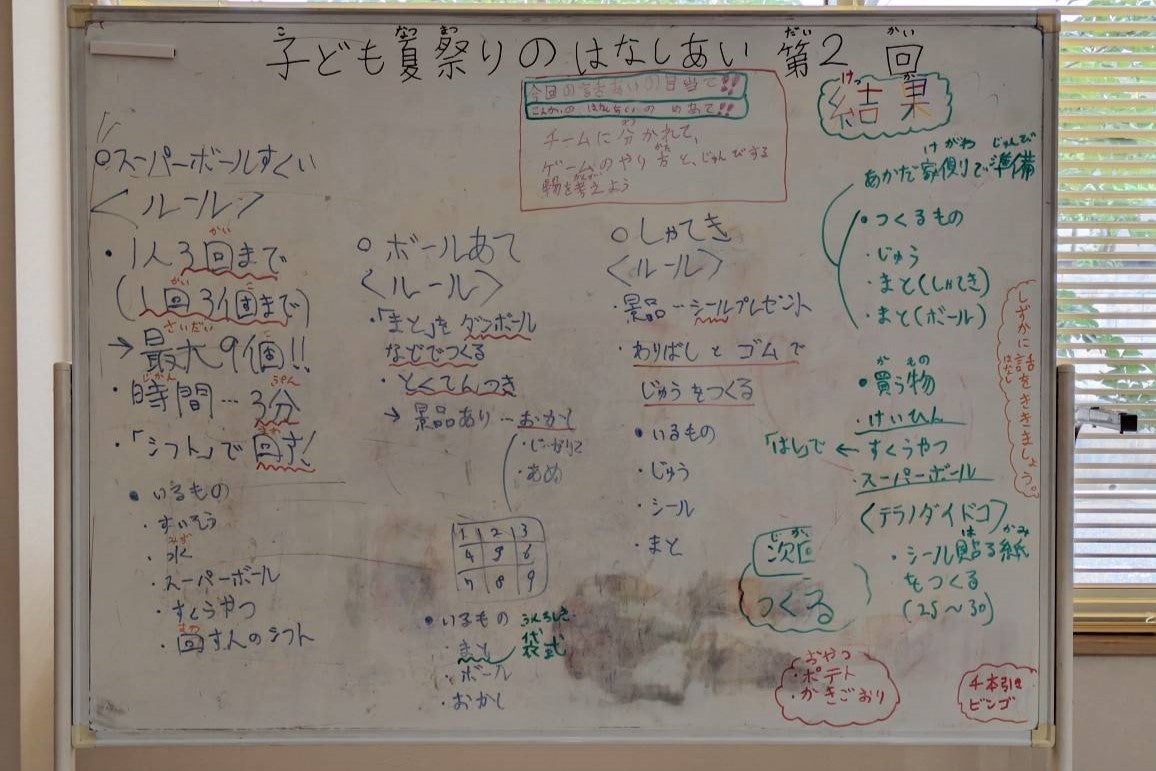 子ども夏祭りのはなしあい 第2回
なつ まつ だい かい
今回の
こんかいの はなしあいの めあて!!
チームに分かれて、
わ
ゲームのやり方と、じゅんびする
かた
物を考えよう
かんが
○スーパーボールすくい
<ルール>
・1人3回まで
かい
(1回3個まで)
かい こ
→最大9個!!
さいだい
・時間…3分
じかん
・「シフト」で回す!
まわ
・いるもの
・すいそう
・水
みず
・スーパーボール
・すくうやつ
・回す人のシフト
○ボールあて
<ルール>
・「まと」をダンボール
などでつくる
・とくてんつき
→景品あり…おかし
・じゃがりこ
・あめ
1 2 3
4 5 6
7 8 9
・いるもの
・まと 袋式
・ボール
・おかし
○しゃてき
<ルール>
・景品…シールプレゼント
・わりばしとゴムで
じゅうをつくる
・いるもの
・じゅう
・シール
・まと
結果
けっ か
あかだ家側りで準備
けがわ じゅんび
・つくるもの
・じゅう
・まと(しゃてき)
・まと(ボール)
・買う物
か もの
・けいひん
「はし」で ← すくうやつ
・スーパーボール
<テラノダイドコ>
・シール貼る紙
は かみ
をつくる
(25～30)
しずかに話をききましょう。
はなし
次回
じ かい
つくる
おやつ
・ポテト
・かきごおり
千本引き
ビンゴ